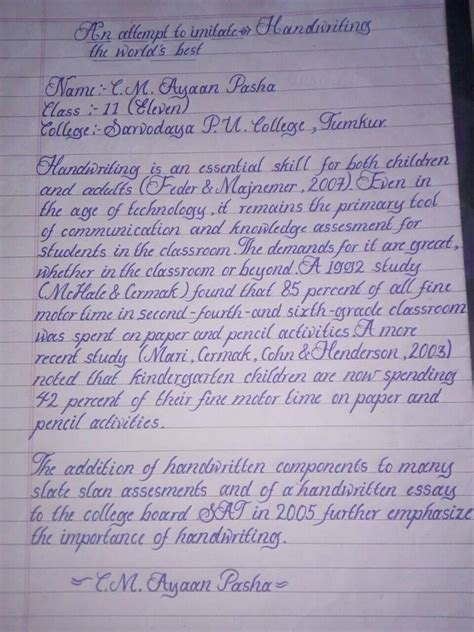 An attempt to imitate Handwriting
the world's best
Name:- C.M. Ayaan Pasha
Class :- 11 (Eleven)
College:- Sarvodaya P.U. College, Tumkur.
Handwriting is an essential skill for both children
and adults (Feder & Majnemer, 2007). Even in
the age of technology, it remains the primary tool
of communication and knowledge assesment for
students in the classroom. The demands for it are great,
whether in the classroom or beyond. A 1992 study
(McHale & Cermak) found that 85 percent of all fine
motor time in second-fourth-and sixth-grade classroom
was spent on paper and pencil activities. A more
recent study (Mari, Cermak, Cohn & Henderson, 2003)
noted that kindergarten children are now spending
42 percent of their fine motor time on paper and
pencil activities.
The addition of handwritten components to many
state slan assesments and of a handwritten essay
to the college board SAT in 2005 further emphasize
the importance of handwriting.
~C.M. Ayaan Pasha~